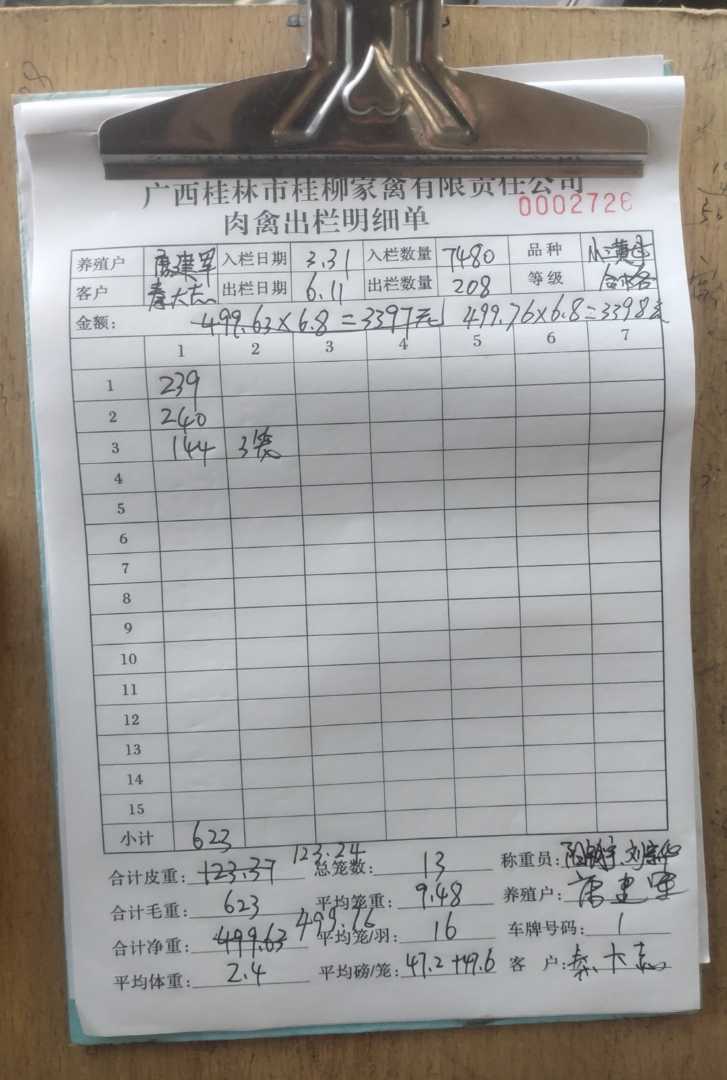 广西桂林市桂柳家禽有限责任公司
肉禽出栏明细单 0002726
养殖户 唐建军 入栏日期 3.31 入栏数量 7480 品种
客户 秦大志 出栏日期 6.11 出栏数量 208 等级 合格
金额: 499.63×6.8=3397元 499.76×6.8=3398元
1 2 3 4 5 6 7
1 239
2 240
3 144 3笼
4
5
6
7
8
9
10
11
12
13
14
15
小计 623
合计皮重: 123.37 123.24 总笼数: 13 称重员:
合计毛重: 623 平均笼重: 9.48 养殖户: 唐建军
合计净重: 499.63 499.76 平均笼/羽: 16 车牌号码: 1
平均体重: 2.4 平均磅/笼: 47.2+49.6 客户: 秦大志